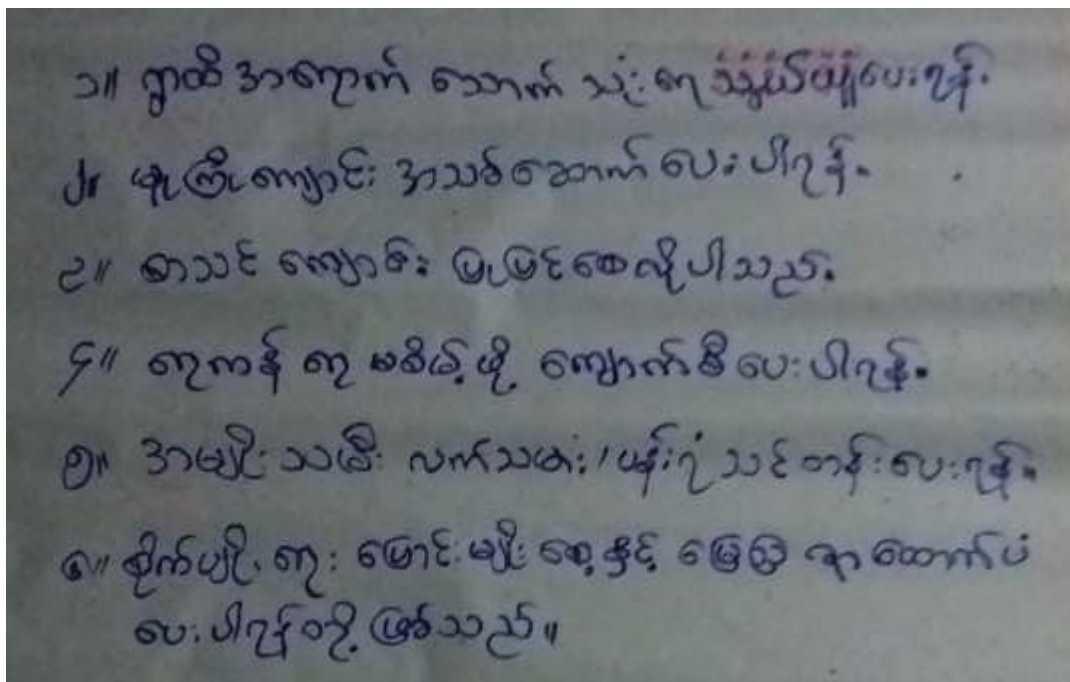 ၁။ ရွာထိ အရောက် သောက် သုံး ရေ သွယ်ယူပေးရန်.
၂။ မူကြိုကျောင်း အသစ်ဆောက် ပေး ပါရန်.
၃။ စာသင် ကျောင်း ပြုပြင်စေလိုပါသည်.
၄။ ရေကန် ရေ မစိမ့်ဖို့ ကျောက်စီ ပေး ပါရန်.
၅။ အမျိုး သမီး လက်သမား/ပန်းရံ သင်တန်း ပေး ရန်.
၆။ စိုက်ပျိုး ရေး မြောင်း မျိုး စေ့နှင့် မြေဩ ဇာ ထောက်ပံ့
ပေး ပါရန်တို့ ဖြစ်သည်။